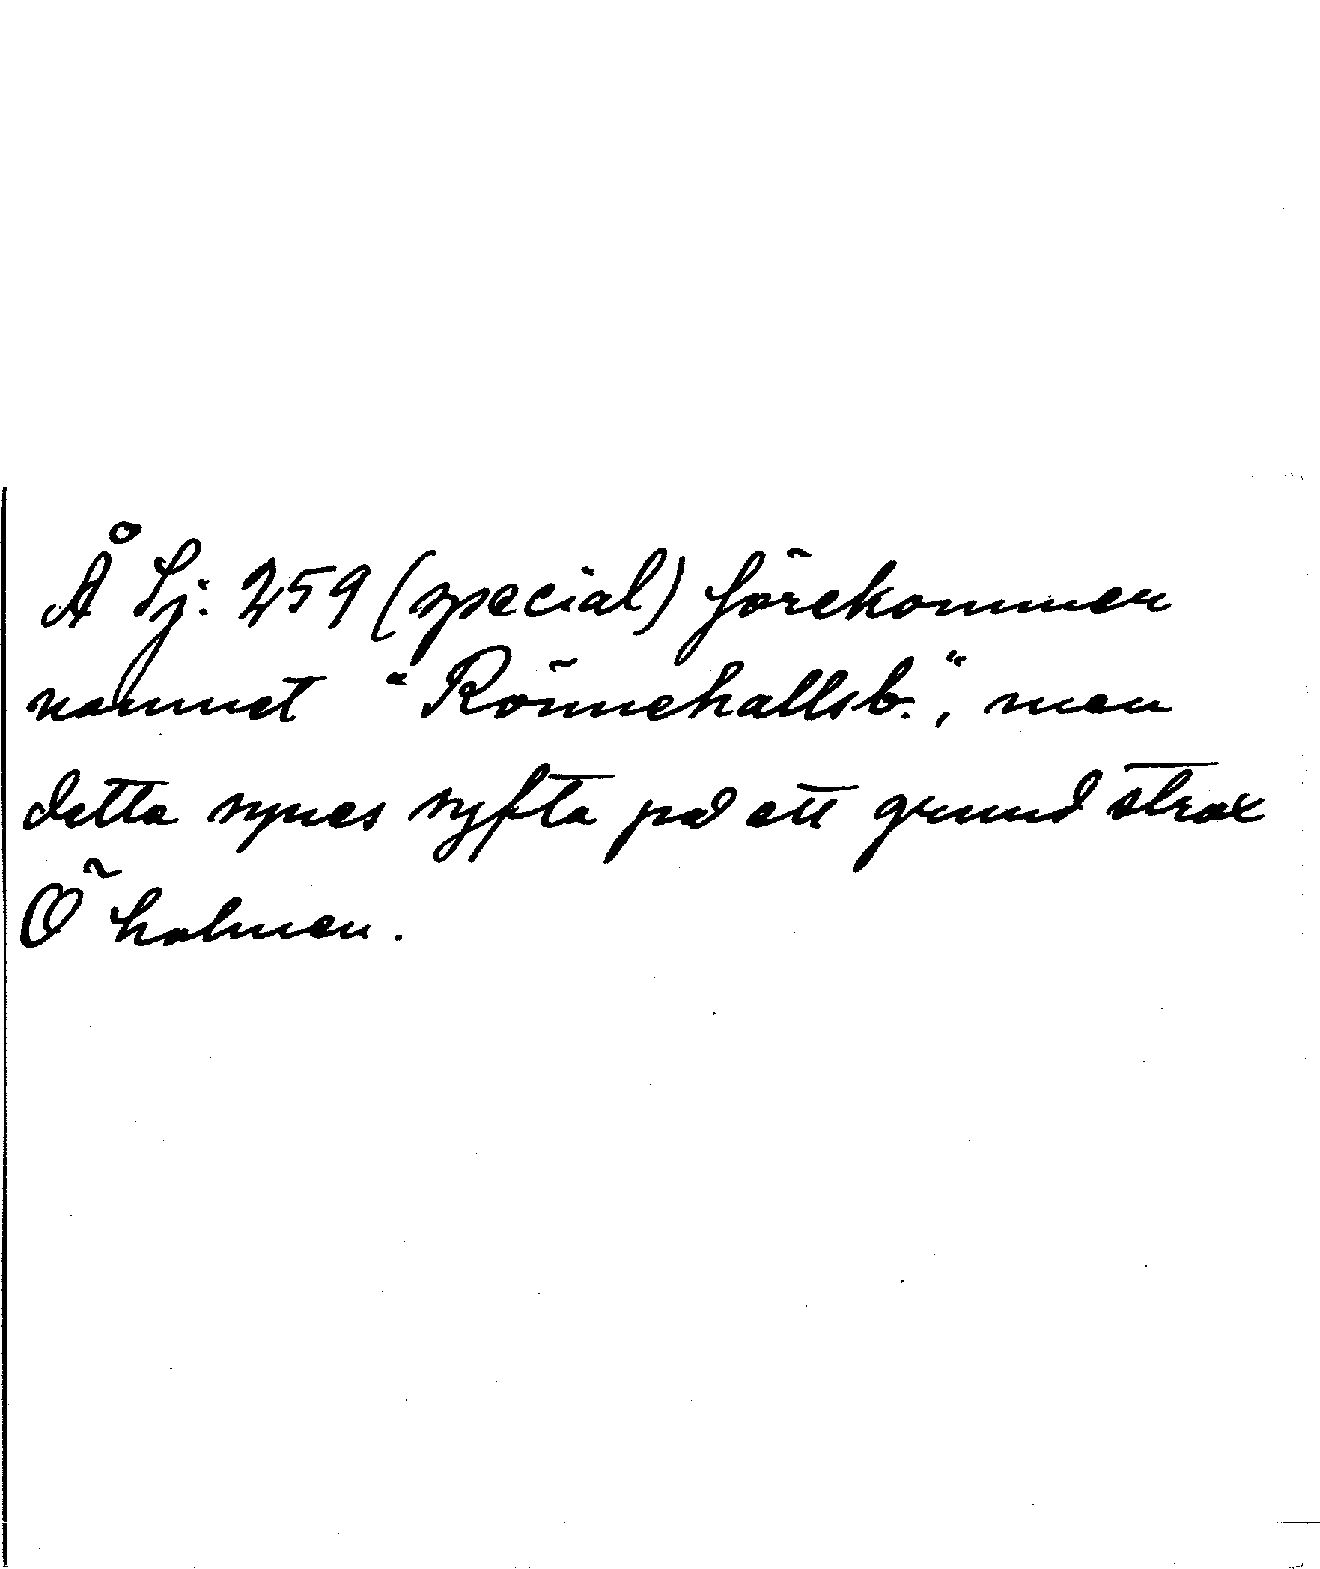 Å Sj. 259 (special) förekommer
namnet "Rönnehallsb.", men
detta synes syfta på ett grund strax
Ö holmen.